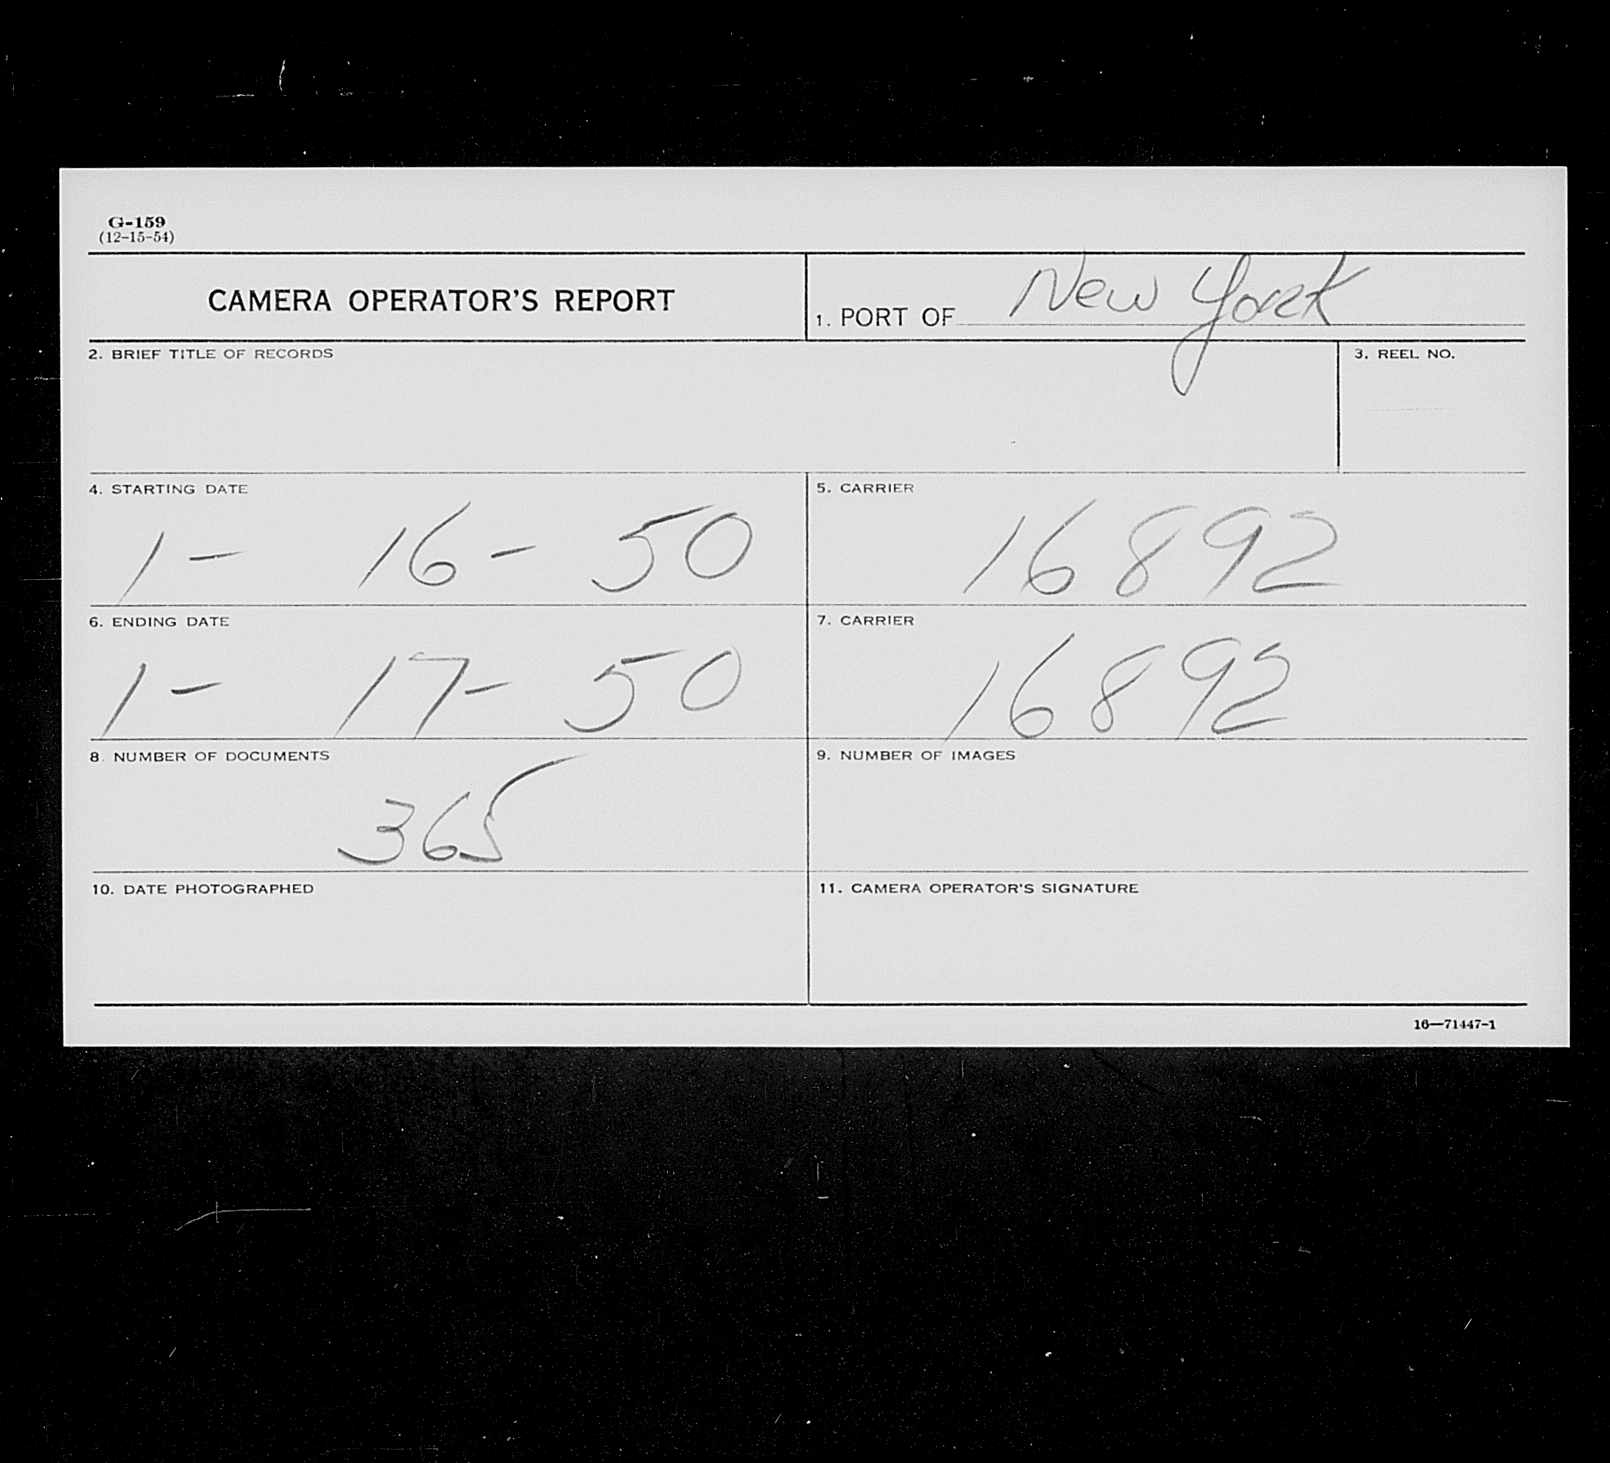 G-159
(12-15-54)
CAMERA OPERATOR'S REPORT
1. PORT OF New York
2. BRIEF TITLE OF RECORDS
3. REEL NO.
4. STARTING DATE
1- 16- 50
5. CARRIER
16892
6. ENDING DATE
1- 17- 50
7. CARRIER
16892
8. NUMBER OF DOCUMENTS
365
9. NUMBER OF IMAGES
10. DATE PHOTOGRAPHED
11. CAMERA OPERATOR'S SIGNATURE
16—71447-1